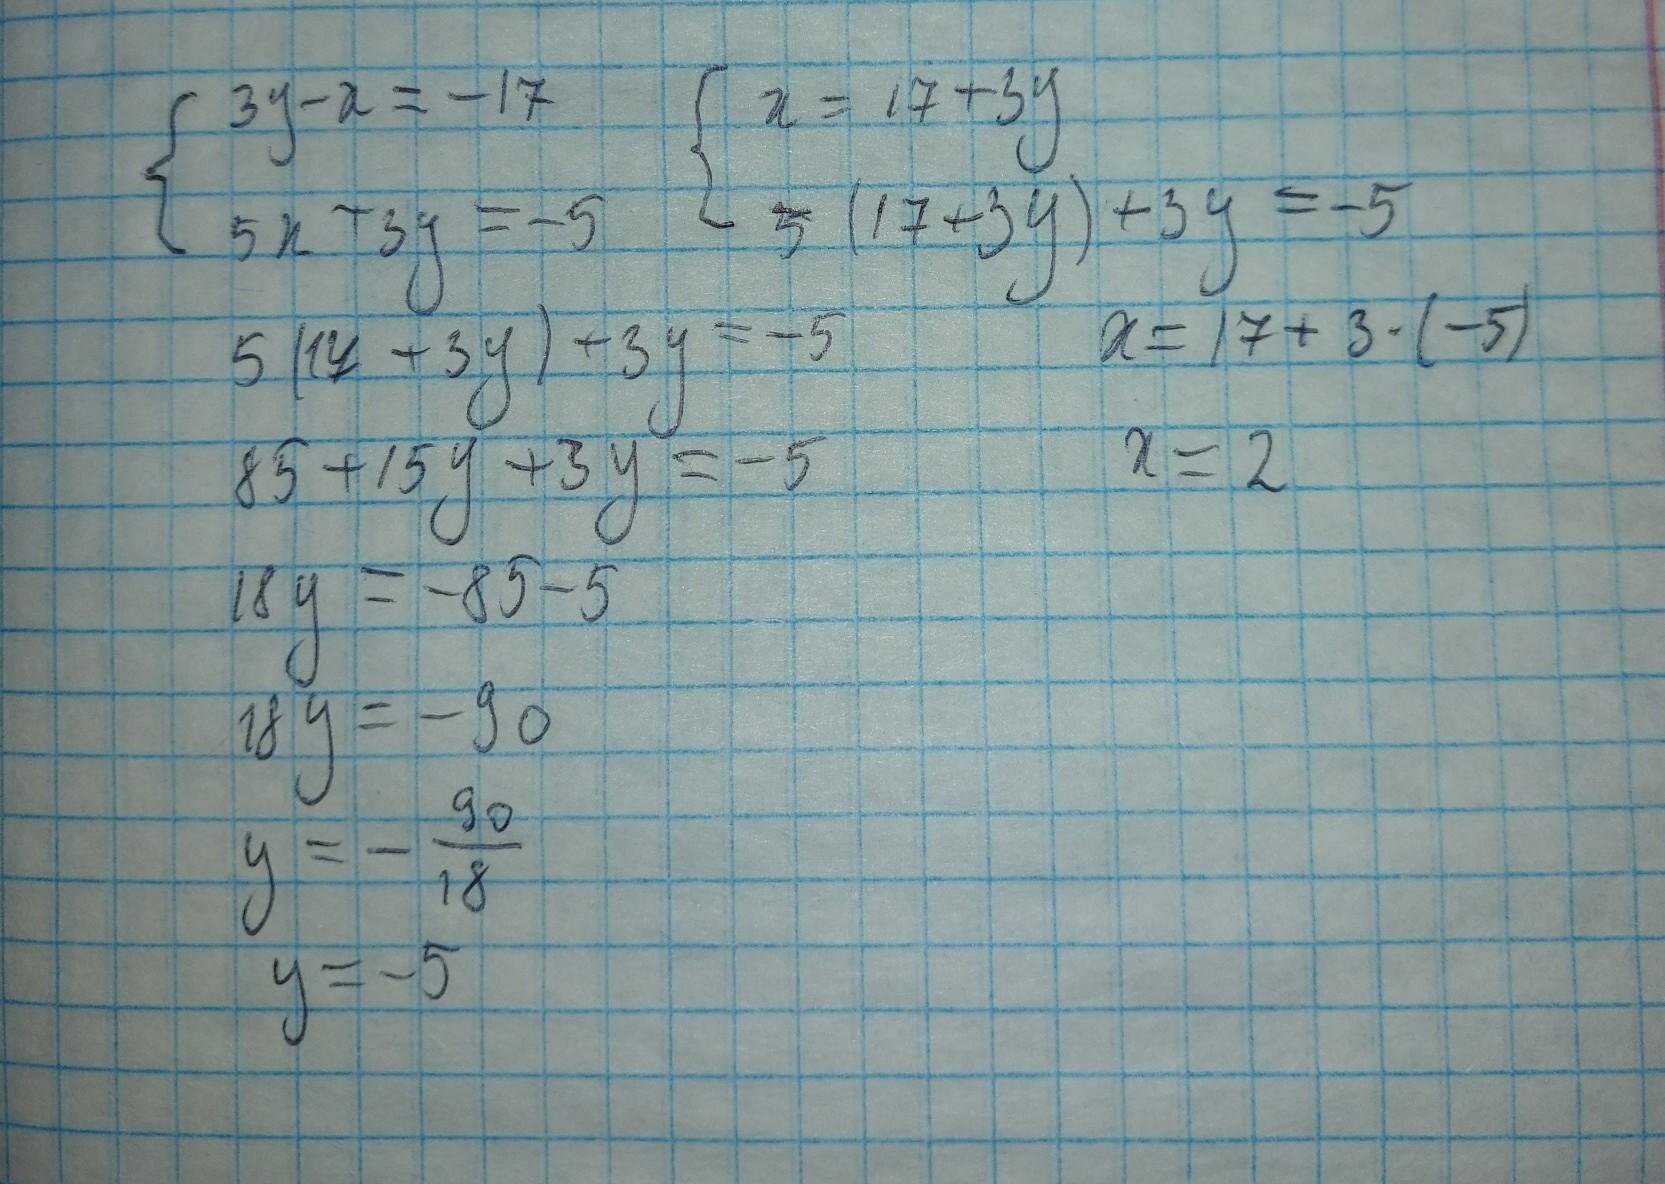 3y-x=-17
5x+3y=-5
x=17+3y
5(17+3y)+3y=-5
5(17+3y)+3y=-5
85+15y+3y=-5
18y=-85-5
18y=-90
y=-90/18
y=-5
x=17+3·(-5)
x=2